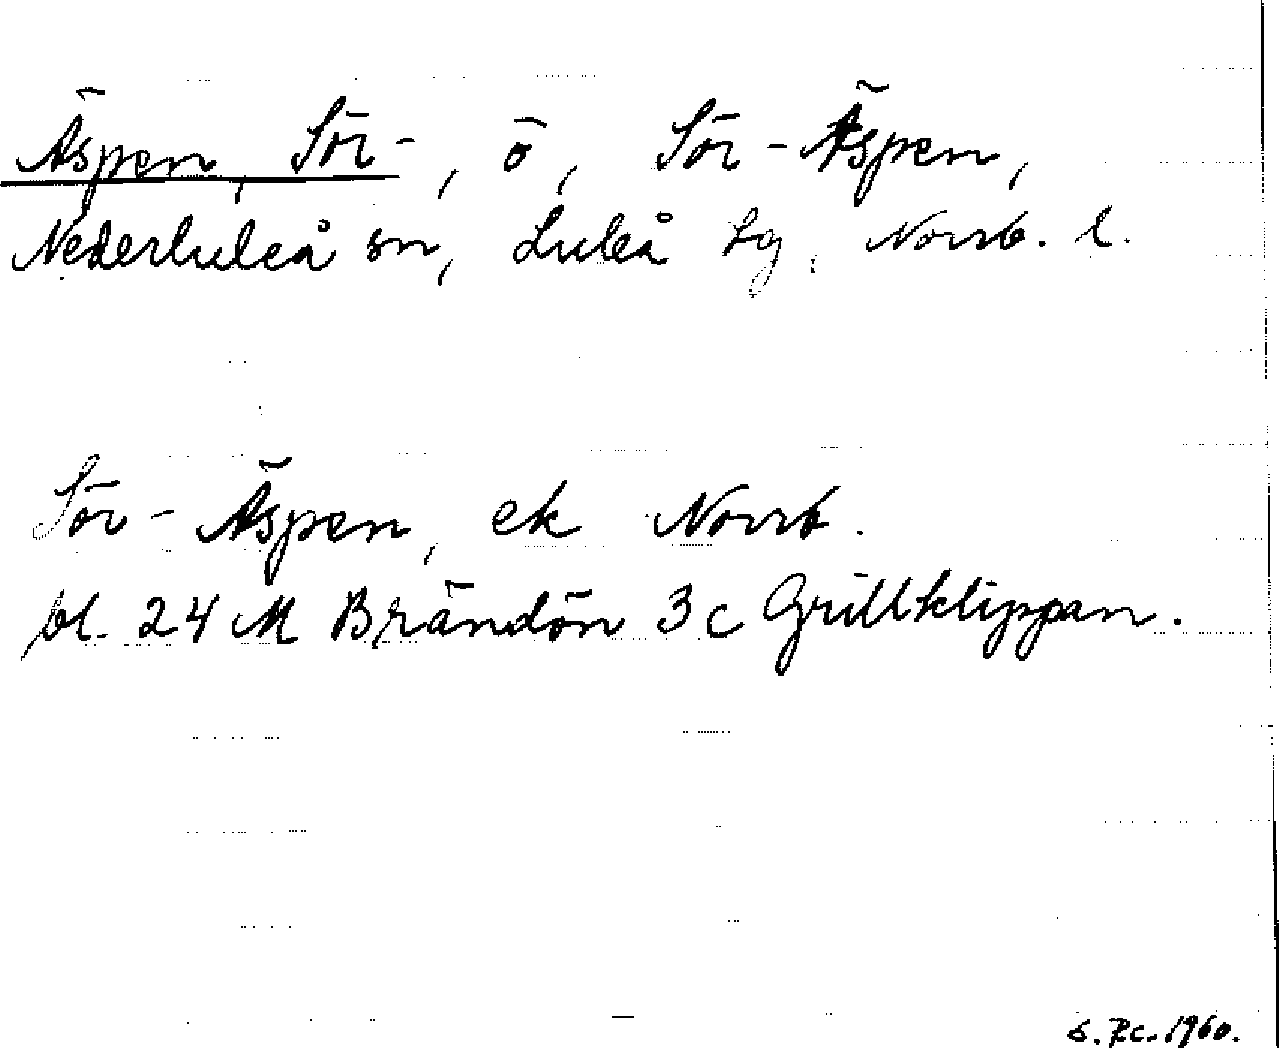 Äspen, Sör-, ö, Sör-Äspen,
Nederluleå sn, Luleå tg, Norrb. l.
Sör-Äspen, ek Norrb.
bl. 24 M Brändön 3 c Grillklippan.
1960.